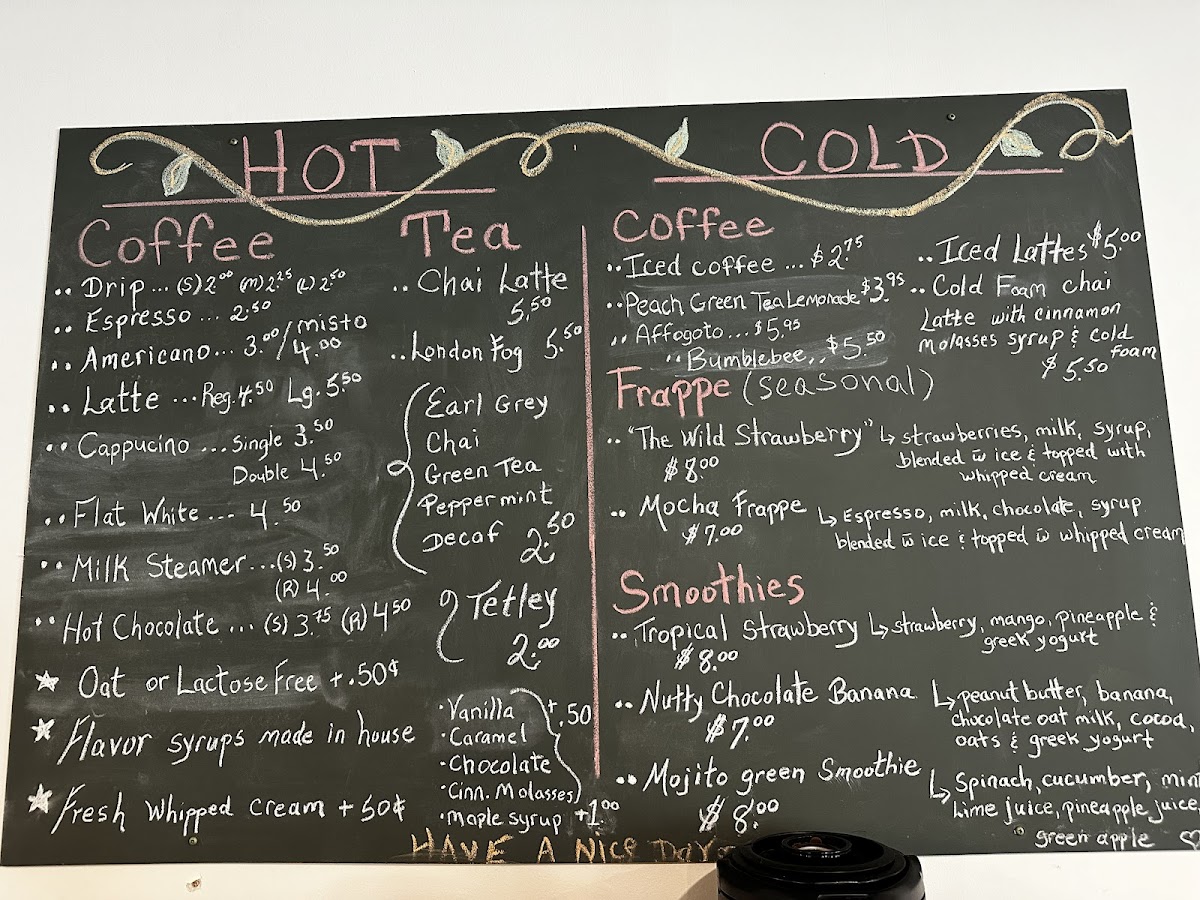 HOT
Coffee
.. Drip... (S) 2.00 (M) 2.25 (L) 2.50
.. Espresso ... 2.50
.. Americano... 3.00/misto 4.00
.. Latte ... Reg. 4.50 Lg. 5.50
.. Cappucino ... Single 3.50
Double 4.50
.. Flat White ... 4.50
.. Milk Steamer ...(S) 3.50
(R) 4.00
.. Hot Chocolate ... (S) 3.75 (R) 4.50
★ Oat or Lactose Free +.50¢
★ Flavor syrups made in house
★ Fresh Whipped Cream + 50¢
Tea
.. Chai Latte
5.50
.. London Fog 5.50
Earl Grey
Chai
Green Tea
Peppermint
Decaf 2.50
Tetley
2.00
· Vanilla +.50
· Caramel
· Chocolate
· Cinn. Molasses
· Maple syrup +1.00
COLD
Coffee
.. Iced coffee ... $2.75
.. Peach Green Tea Lemonade $3.95
.. Affogoto ... $5.95
.. Bumblebee.. $5.50
.. Iced Lattes $5.00
.. Cold Foam chai
Latte with cinnamon
molasses syrup & cold
foam
$5.50
Frappe (seasonal)
.. "The Wild Strawberry" ↳ strawberries, milk, syrup,
$8.00 blended w̄ ice & topped with
whipped cream
.. Mocha Frappe ↳ Espresso, milk, chocolate, syrup
$7.00 blended w̄ ice & topped w̄ whipped cream
Smoothies
.. Tropical Strawberry ↳ strawberry, mango, pineapple &
$8.00 greek yogurt
.. Nutty Chocolate Banana ↳ peanut butter, banana,
$7.00 chocolate oat milk, cocoa,
oats & greek yogurt
.. Mojito green Smoothie ↳ Spinach, cucumber, min
$8.00 Lime juice, pineapple juice,
green apple ♡
HAVE A NICE DAY